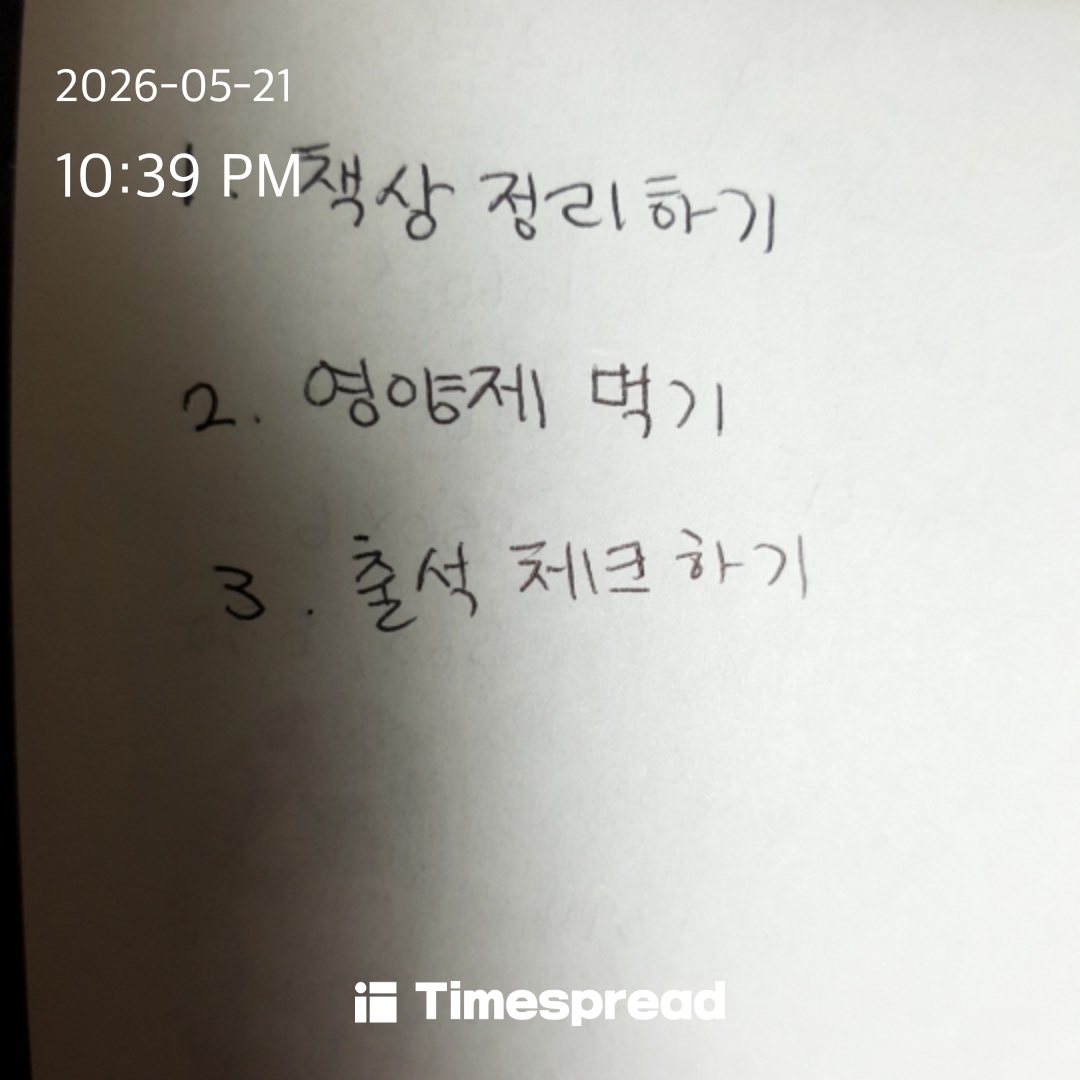 2026-05-21
10:39 PM
1. 책상 정리하기
2. 영양제 먹기
3. 출석 체크하기
Timespread